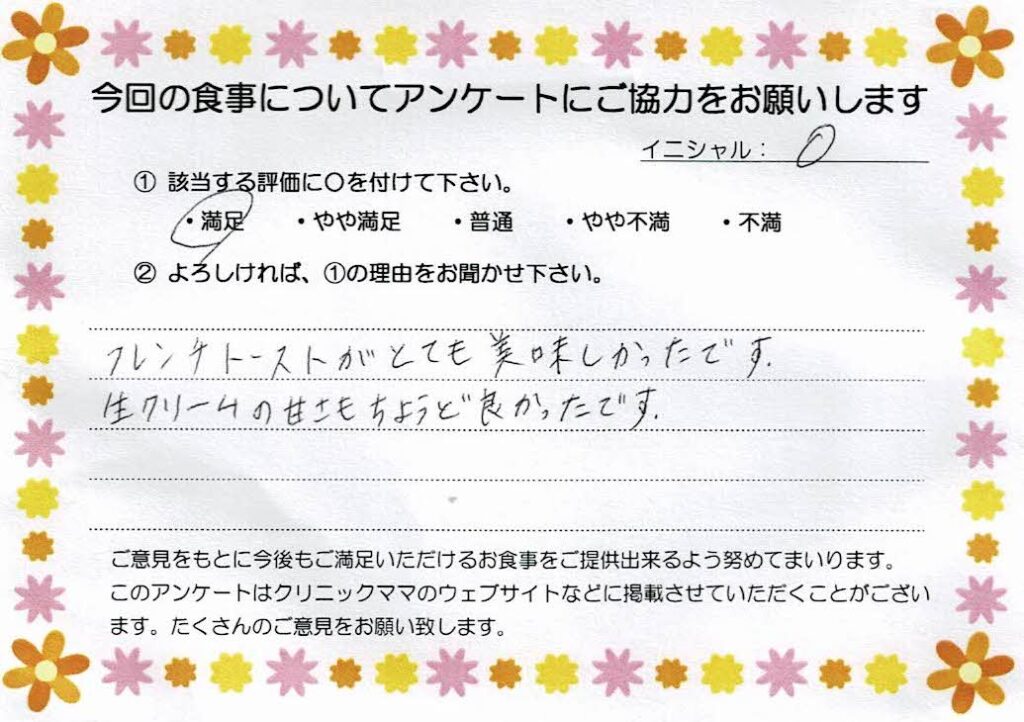 今回の食事についてアンケートにご協力をお願いします
イニシャル： O
① 該当する評価に〇を付けて下さい。
・満足 ・やや満足 ・普通 ・やや不満 ・不満
② よろしければ、①の理由をお聞かせ下さい。
フレンチトーストがとても美味しかったです.
生クリームの甘さもちょうど良かったです.
ご意見をもとに今後もご満足いただけるお食事をご提供出来るよう努めてまいります。
このアンケートはクリニックママのウェブサイトなどに掲載させていただくことがござい
ます。たくさんのご意見をお願い致します。